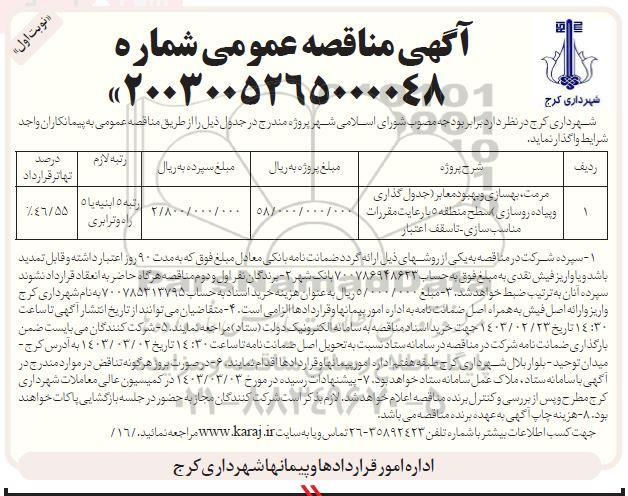 «نوبت اول»
شهرداری کرج
آگهی مناقصه عمومی شماره
۲۰۰۳۰۰۵۲۶۵۰۰۰۰۴۸ »
شهرداری کرج در نظر دارد برابر بودجه مصوب شورای اسلامی شهر پروژه مندرج در جدول ذیل را از طریق مناقصه عمومی به پیمانکاران واجد
شرایط واگذار نماید.
ردیف شرح پروژه مبلغ پروژه به ریال مبلغ سپرده به ریال رتبه لازم درصد تهاتر قرارداد
۱ مرمت، بهسازی و بهبود معابر (جدول گذاری و پیاده روسازی) سطح منطقه ۵ با رعایت مقررات مناسب سازی-تا سقف اعتبار ۵۸/۰۰۰/۰۰۰/۰۰۰ ۲/۸۰۰/۰۰۰/۰۰۰ رتبه ۵ ابنیه یا ۵ راه و ترابری ۴۶/۵۵٪
۱-سپرده شرکت در مناقصه به یکی از روشهای ذیل ارائه گردد ضمانت نامه بانکی معادل مبلغ فوق که به مدت ۹۰ روز اعتبار داشته و قابل تمدید
باشد و یا واریز فیش نقدی به مبلغ فوق به حساب ۷۰۰۷۸۶۹۴۸۶۲۳ بانک شهر ۲-برندگان نفر اول و دوم مناقصه هرگاه حاضر به انعقاد قرارداد نشوند
سپرده آنان به ترتیب ضبط خواهد شد. ۳-مبلغ ۵/۰۰۰/۰۰۰ ریال به عنوان هزینه خرید اسناد به حساب ۷۰۰۷۸۵۳۱۳۷۹۵ به نام شهرداری کرج
واریز و ارائه اصل فیش به همراه اصل ضمانت نامه به اداره امور پیمانها و قراردادها الزامی است. ۴-متقاضیان می توانند از تاریخ انتشار آگهی تا ساعت
۱۴:۳۰ تاریخ ۱۴۰۳/۰۲/۲۳ جهت خرید اسناد مناقصه به سامانه الکترونیک دولت (ستاد) مراجعه نمایند. ۵-شرکت کنندگان می بایست ضمن
بارگذاری ضمانت نامه شرکت در مناقصه در سامانه ستاد نسبت به تحویل اصل ضمانت نامه تا ساعت ۱۴:۳۰ تاریخ ۱۴۰۳/۰۳/۰۲ به آدرس کرج-
میدان توحید- بلوار بلال شهرداری کرج طبقه هفتم اداره امور پیمانها و قراردادها اقدام نمایند. ۶-در صورت بروز هرگونه تناقض در موارد مندرج در
آگهی با سامانه ستاد، ملاک عمل سامانه ستاد خواهد بود. ۷-پیشنهادات رسیده در مورخ ۱۴۰۳/۰۳/۰۳ در کمیسیون عالی معاملات شهرداری
کرج مطرح و پس از بررسی و کنترل برنده مناقصه اعلام خواهد شد. لازم بذکر است شرکت کنندگان مجاز به حضور در جلسه بازگشایی پاکات خواهند
بود. ۸-هزینه چاپ آگهی به عهده برنده مناقصه می باشد.
جهت کسب اطلاعات بیشتر با شماره تلفن ۳۵۸۹۲۴۲۳-۲۶ تماس و یا به سایت www.karaj.ir مراجعه نمائید. /۱۶/
اداره امور قراردادها و پیمانها شهرداری کرج